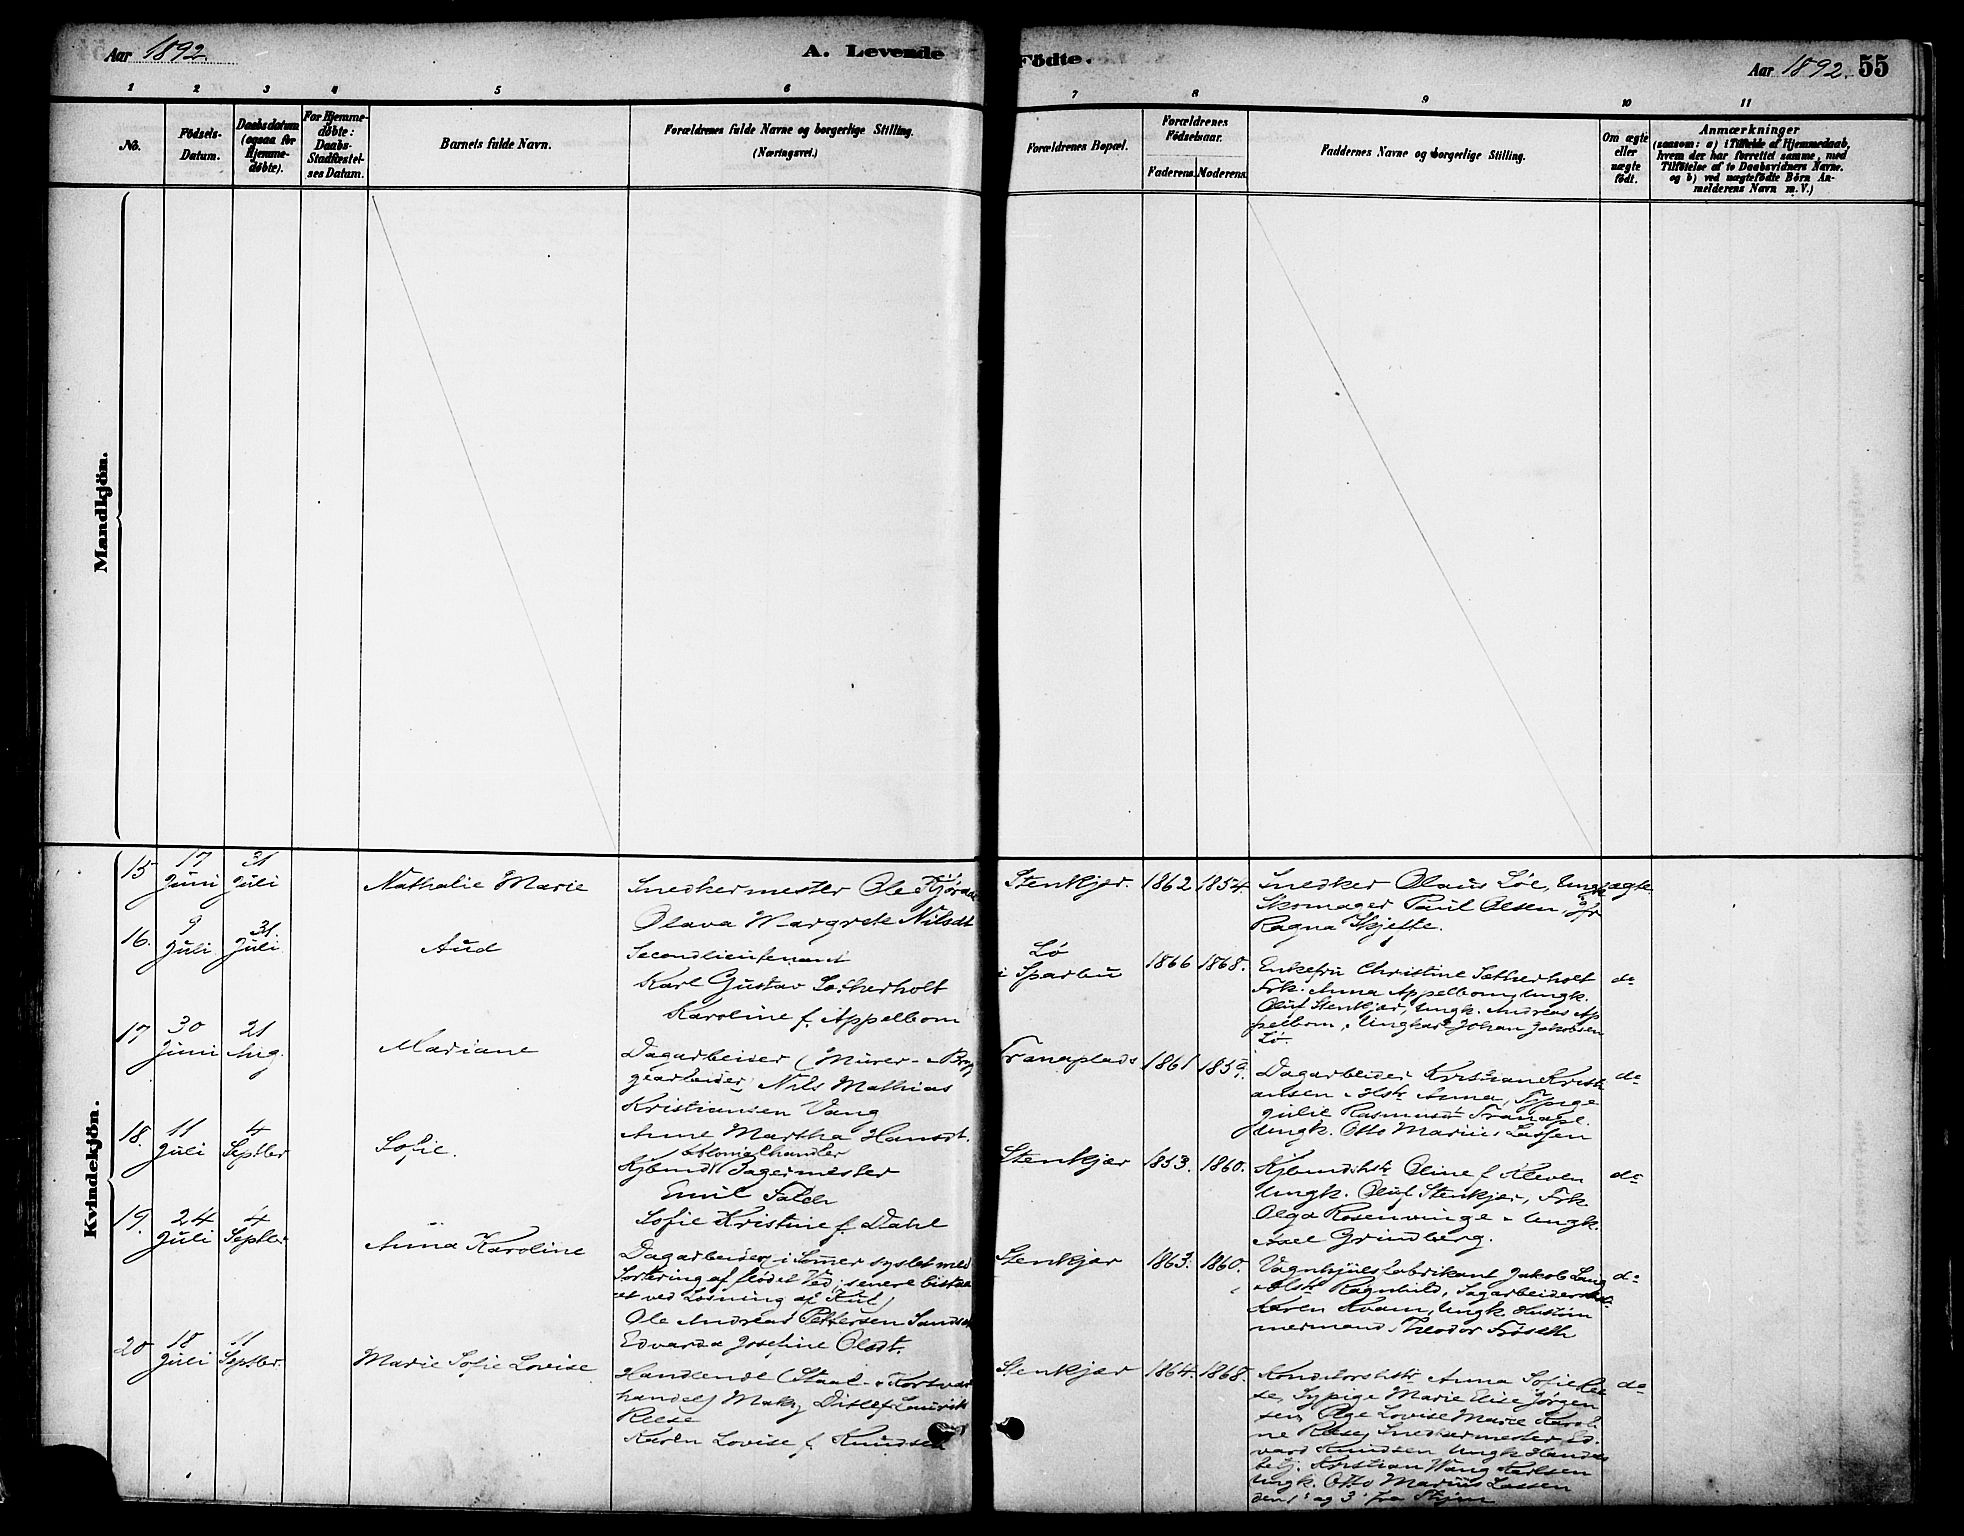 Aar 1892.
A. Levende Födte.
Aar 1892. 55
1 2 3 4 5 6 7 8 9 10 11
No.
Födsels-
Datum.
Daabsdatum
(ogsaa for
Hjemme-
døbte).
For Hjemme-
døbte:
Daabs-
Stadfæstel-
ses Datum.
Barnets fulde Navn.
Forældrenes fulde Navne og borgerlige Stilling.
(Næringsvei.)
Forældrenes Bopæl.
Forældrenes
Födselsaar.
Faderens. Moderens.
Faddernes Navne og borgerlige Stilling.
Om ægte
eller
uægte
födt.
Anmærkninger
(saasom: a) i Tilfælde af Hjemmedaab,
hvem der har forrettet samme, med
Tilföielse af to Daabsvidners Navne.
og b) ved uægtefödte Börn An-
melderens Navn m. V.)
Mandkjön.
Kvindekjön.
15 17 Juni 31 Juli Nathalie Marie
Snedkermester Ole
Olava Margrete Nilsdt
Stenkjer. 1862 1854.
Snedker Olaus Löe, Ungk
Skomager Paul Olsen,
Ragna Skjefte.
ægte
16. 9 Juli 31. Juli Aud
Secondlieutenant
Karl Gustav Sætherholt
Karoline f. Appelbom
Lö
i Sparbu 1866 1868.
Enkefru Christine Sætherholt
Frk. Anna Appelbom, Ungk.
Oluf Stenkjær, Ungk. Andreas Ap
pelbom, Ungkarl Johan Jakobsen
Lö.
do
17 30 Juni 21 Aug. Mariane
Dagarbeider (Murer- Bryg
gearbeider) Nils Mathias
Kristiansen Vang
Anne Martha Hansdt.
Tranaplads 1861
Dagarbeider Kristian Kristi
ansen Hstr Anna, Sypige
Julie Rasmusdt Tranapl.
Ungk. Otto Marius Lassen
do
18. 11 Juli 4 Septber Sofie.
Kjbmd
Jagermester
Emil Falch
Sofie Kristine f. Dahl
Stenkjær 1853. 1860.
Kjbmdshstr Oline f. Kleven
Ungk. Oluf Stenkjær, Frk
Olga Rosenvinge Ungk.
Axel Grindberg.
do
19. 24 Juli 4 Septber Anna Karoline
Dagarbeider, i Sommer syslet med
Sortering af flödet Ved; senere
et ved Losning af Kul)
Ole Andreas Pettersen
Edvarda Josefine Olsdt.
Stenkjær 1863. 1860.
Vognhjulsfabrikant Jakob Lang
Hstr Ragnhild, Sagarbeider
Karen Kvam, Ungk
mermand Theodor Fröseth
do
20 18 Juli 11 Septber. Marie Sofie Lovise
Handlende (Staal- Kortvar
handel)
Ditlef Laurits
Reese
Karen Lovise f. Knudsen
Stenkjær 1864. 1868.
Konditorshstr Anna Sofie Ree
se, Sypige Marie Elise Jörgen
sen, Lovise Marie Karoli
ne Reese, Snedkermester Ed.
vard Knudsen, Ungk Handels
betj. Kristian Wang Karlsen
Ungk. Otto Marius Lassen
den 1 og 3
do